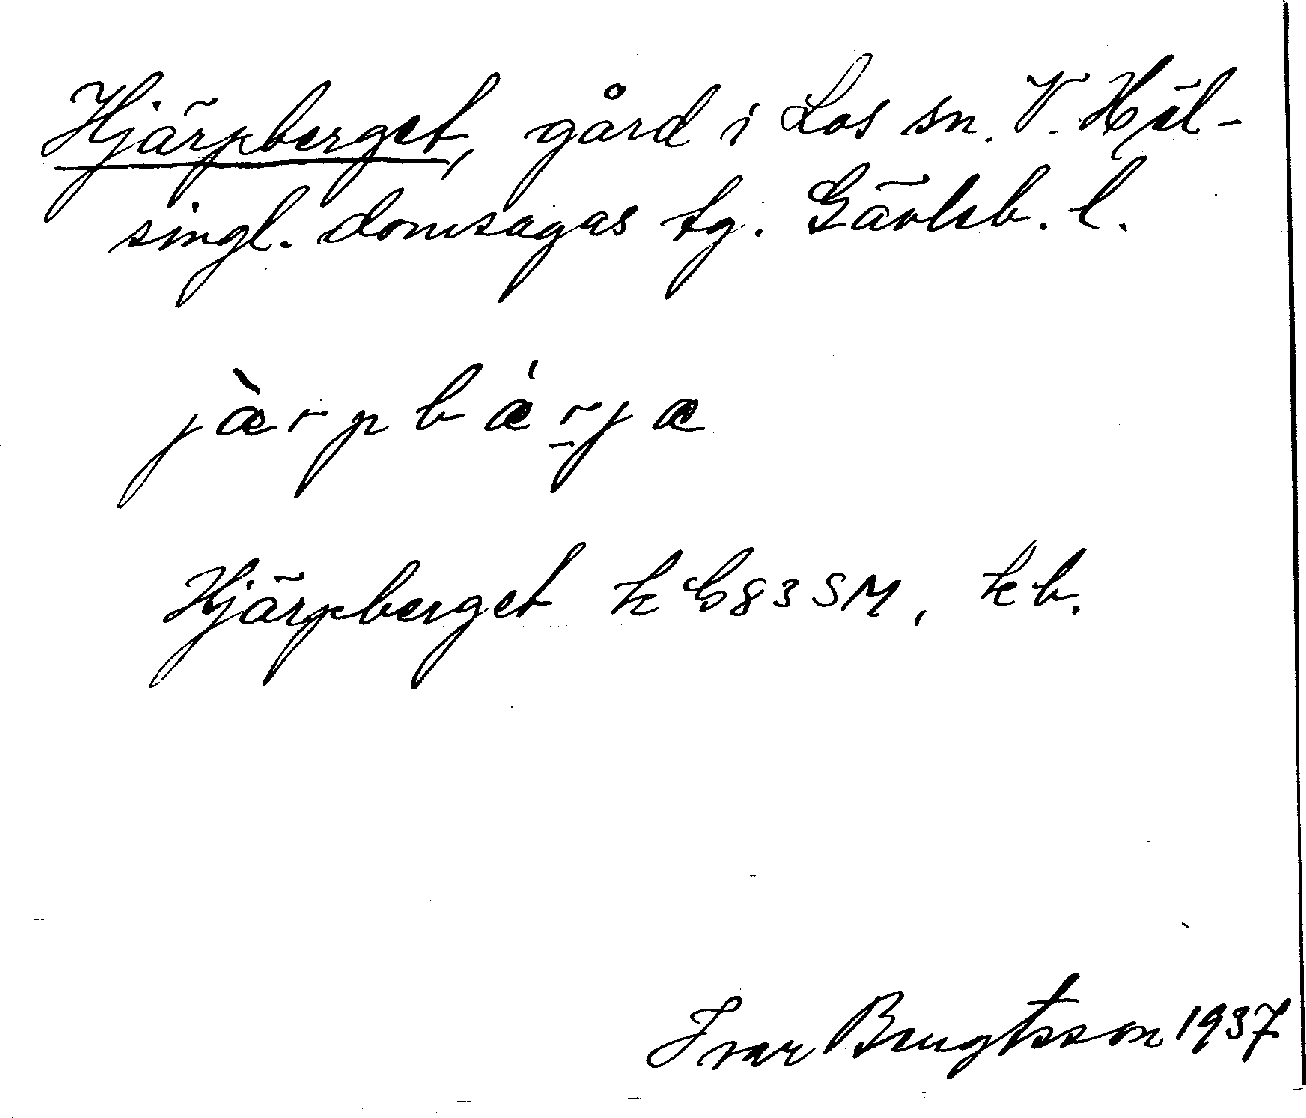 Hjärpberget, gård i Los sn. V. Häl-
singl. domsagas tg. Gävleb. l.
jæ̀rpbǽr̠jæ
Hjärpberget k G83SM, kb.
Ivar Bengtsson 1937